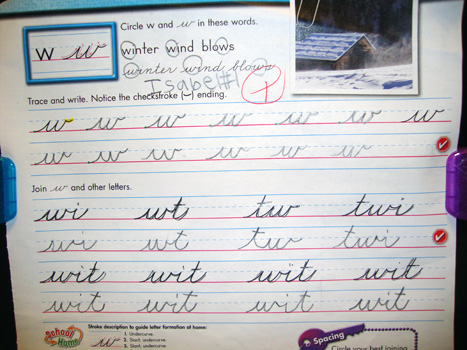 Circle w and w in these words.
w w
winter wind blows
winter wind blows
Isabel #1
Trace and write. Notice the checkstroke ending.
w w w w w w w
w w w w w w
Join w and other letters.
wi wt tw twi
wi wt tw twi
wit wit wit wit
wit wit wit wit
School Home
Stroke description to guide letter formation at home:
w
1. Undercurve
2. Slant, undercurve
3. Slant, undercurve
Spacing
Circle your best joining